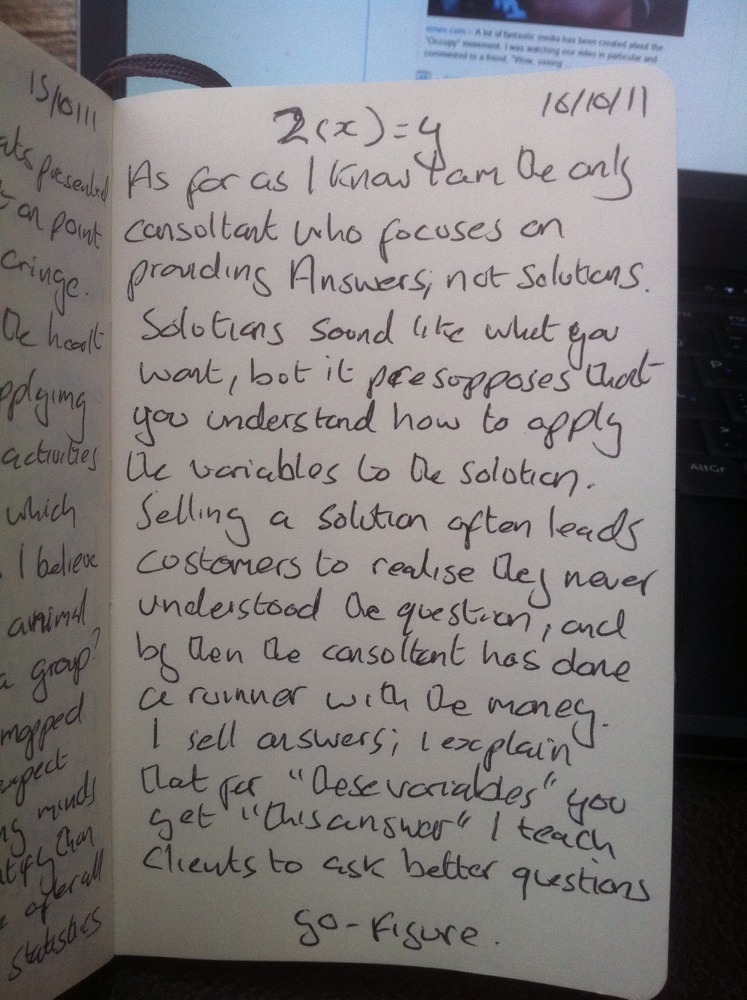 vimeo.com - A lot of fantastic media has been created about the
"Occupy" movement. I was watching one video in particular and
commented to a friend, "Wow, seeing
15/10/11
presented
on point
cringe.
the heart
applying
activities
which
I believe
animal
a group?
mapped
expect
minds
than
after all
statistics
16/10/11
2(x)=y
As far as I know I am the only
consultant who focuses on
providing Answers, not solutions.
Solutions sound like what you
want, but it presupposes that
you understand how to apply
the variables to the solution.
Selling a solution often leads
customers to realise they never
understood the question, and
by then the consultant has done
a runner with the money.
I sell answers; I explain
that for "these variables" you
get "this answer" I teach
clients to ask better questions
go-figure.
AltGr